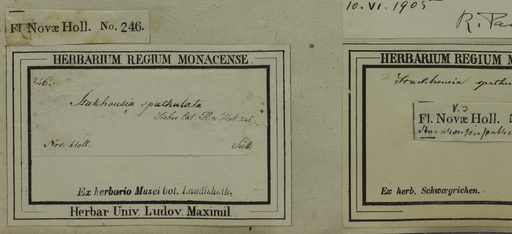 Fl Novæ Holl. No. 246.
HERBARIUM REGIUM MONACENSE.
246.
Stakhousia spathulata
Sieber Cat. Fl. n. Hol. 246.
Nov. Holl. Sieb.
Ex herbario Musei bot. Landishuth.
Herbar Univ. Ludov. Maximil.
10. VI. 1905
HERBARIUM REGIUM M
Stackhousia spathu
V. 3
Fl. Novæ Holl.
Ex herb. Schwægrichen.